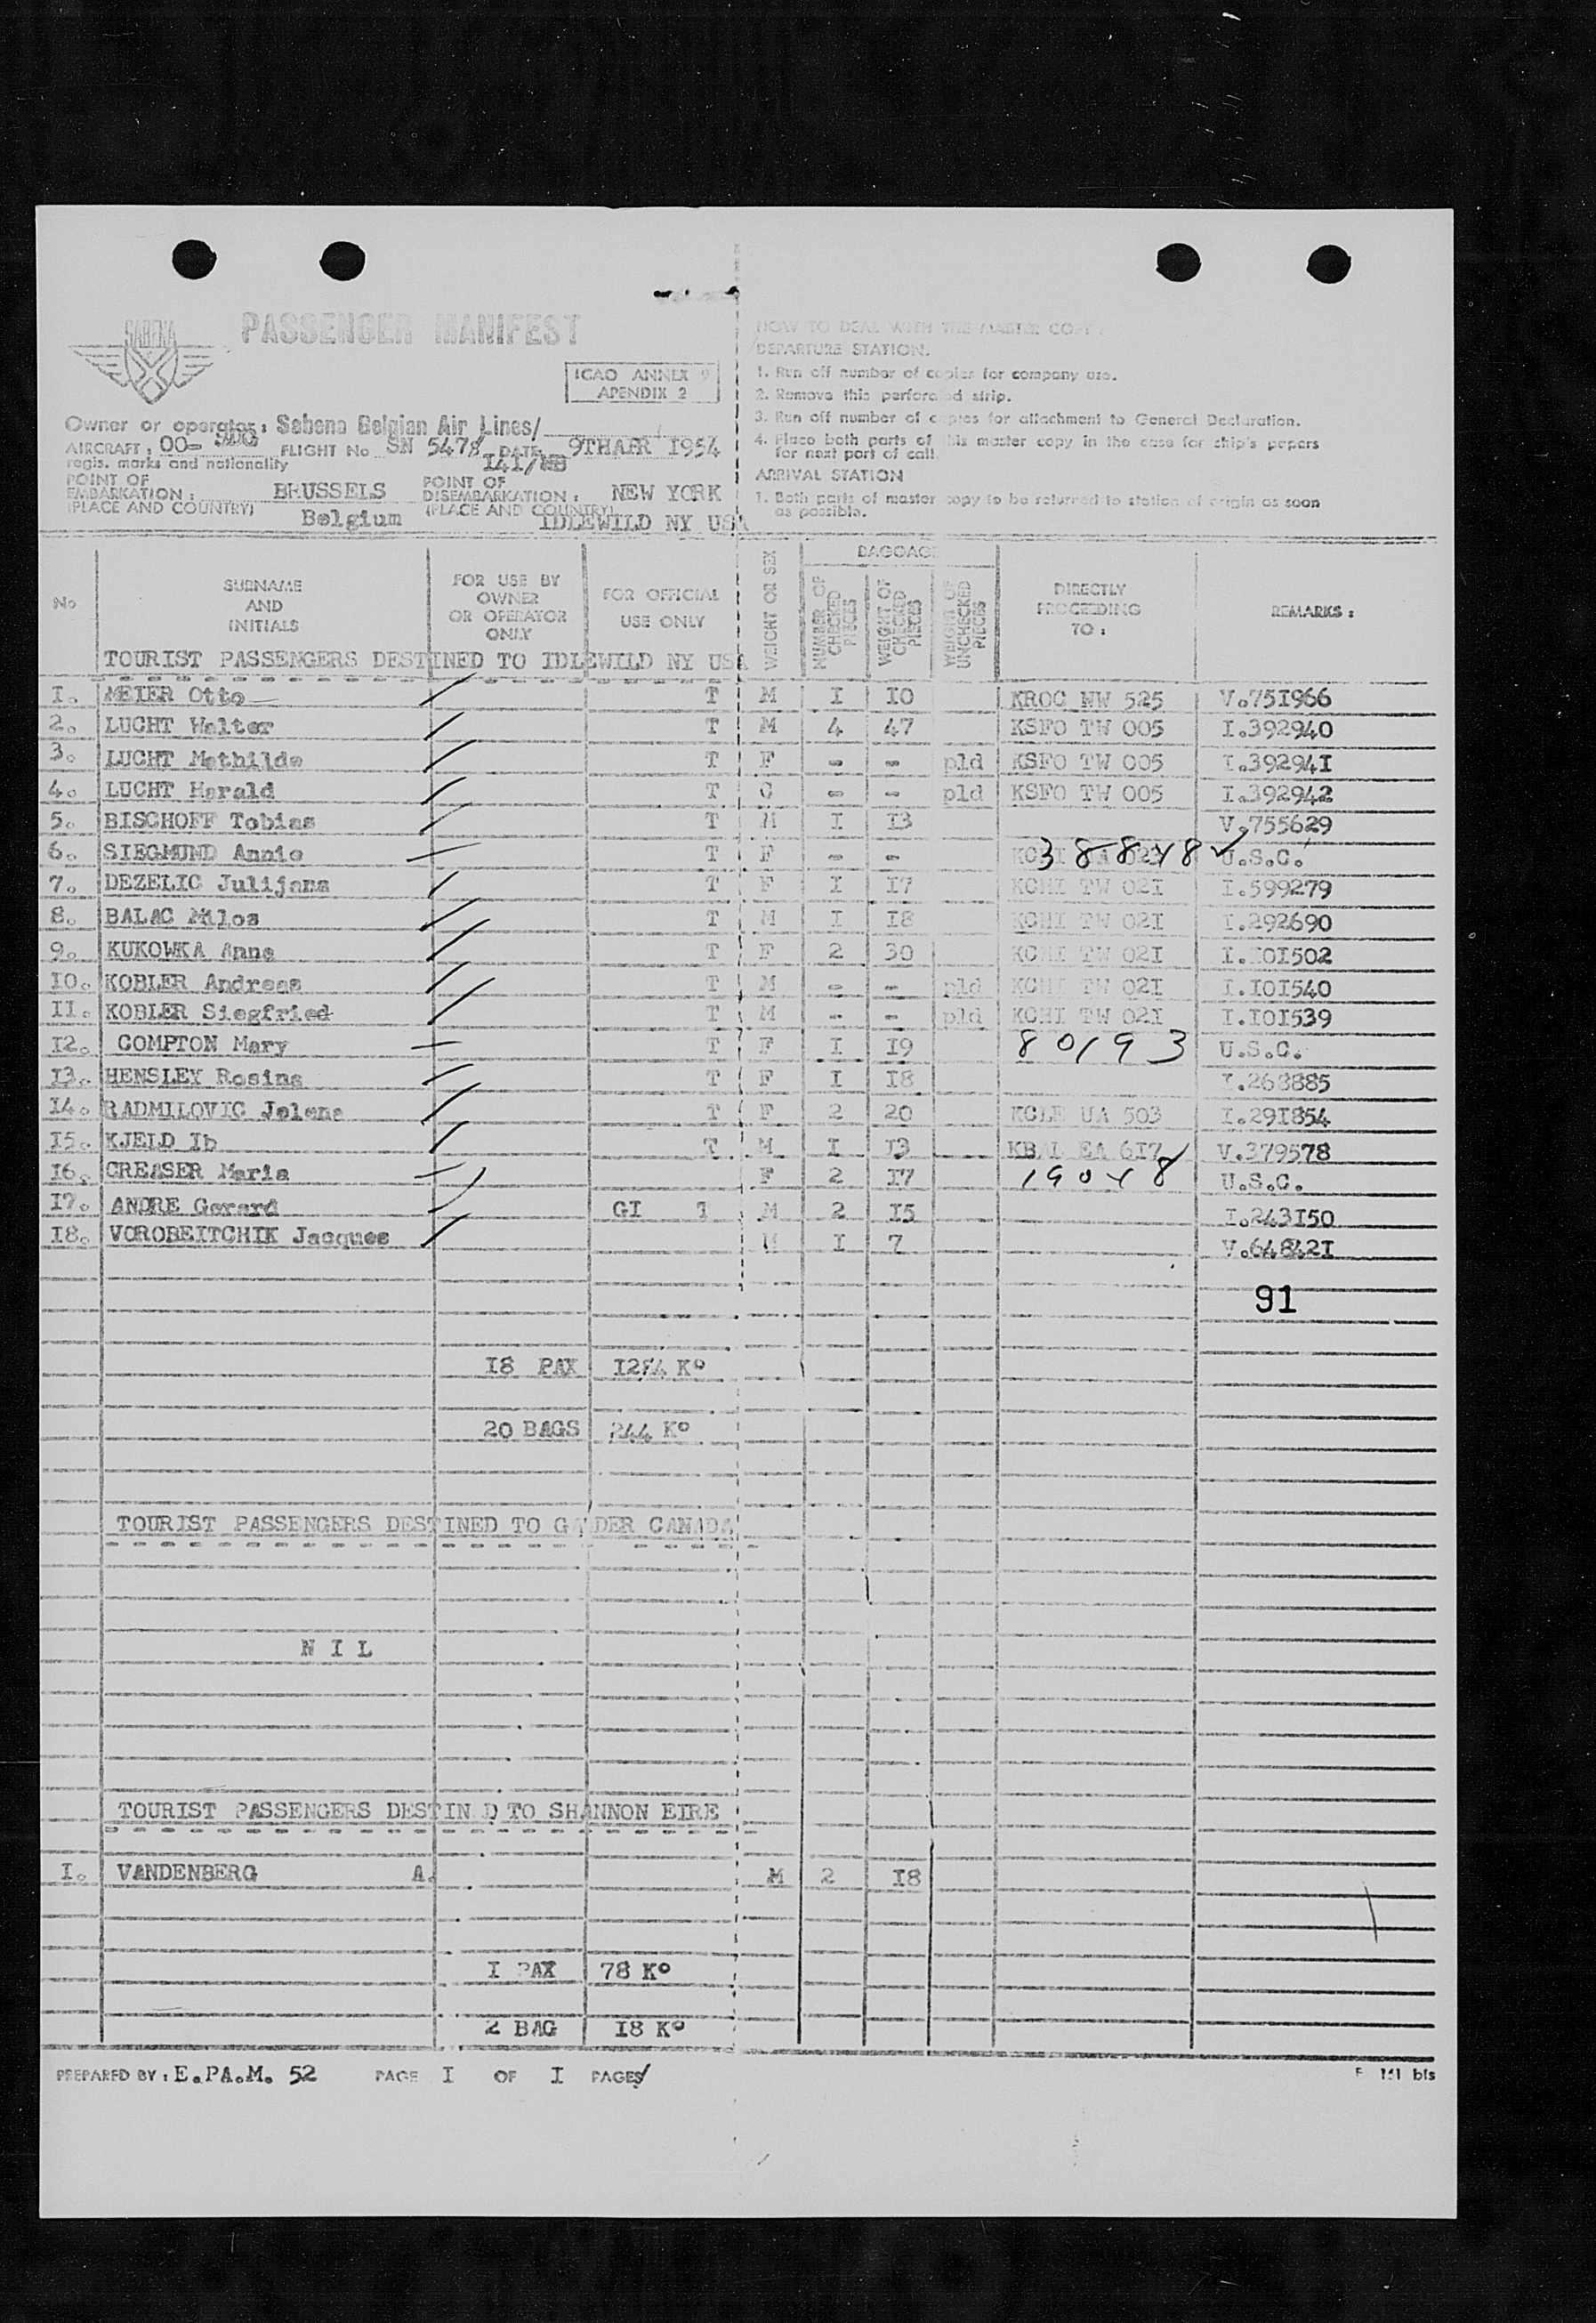 SABENA
PASSENGER MANIFEST
ICAO ANNEX 9
APENDIX 2
Owner or operator : Sabena Belgian Air Lines/
AIRCRAFT : OO- FLIGHT No SN 5478/ DATE 9TH APR 1954
regis. marks and nationality 141/
POINT OF EMBARKATION : BRUSSELS POINT OF DISEMBARKATION : NEW YORK
(PLACE AND COUNTRY) Belgium (PLACE AND COUNTRY) IDLEWILD NY USA
HOW TO DEAL WITH THE MASTER COPY :
DEPARTURE STATION.
1. Run off number of copies for company use.
2. Remove this perforated strip.
3. Run off number of copies for attachment to General Declaration.
4. Place both parts of this master copy in the case for ship's papers
for next port of call.
ARRIVAL STATION
1. Both parts of master copy to be returned to station of origin as soon
as possible.
No
SURNAME AND INITIALS
FOR USE BY OWNER OR OPERATOR ONLY
FOR OFFICIAL USE ONLY
WEIGHT OR SEX
BAGGAGE
NUMBER OF CHECKED PIECES
WEIGHT OF CHECKED PIECES
WEIGHT OF UNCHECKED PIECES
DIRECTLY PROCEEDING TO :
REMARKS :
TOURIST PASSENGERS DESTINED TO IDLEWILD NY USA
I. MEIER Otto T M I I0 KROC NW 525 V.75I966
2. LUCHT Walter T M 4 47 KSFO TW 005 I.392940
3. LUCHT Mathilde T F - - pld KSFO TW 005 I.39294I
4. LUCHT Harald T C - - pld KSFO TW 005 I.392942
5. BISCHOFF Tobias T M I I3 V.755629
6. SIEGMUND Annie T F - - U.S.C.
7. DEZELIC Julijana T F I I7 KCHI TW 02I I.599279
8. BALAC Milos T M I I8 KCHI TW 02I I.292690
9. KUKOWKA Anna T F 2 30 KCHI TW 02I I.I0I502
I0. KOBLER Andreas T M - - pld KCHI TW 02I I.I0I540
II. KOBLER Siegfried T M - - pld KCHI TW 02I I.I0I539
I2. COMPTON Mary T F I I9 80193 U.S.C.
I3. HENSLEY Rosina T F I I8 I.268885
I4. RADMILOVIC Jelena T F 2 20 KCLE UA 503 I.29I854
I5. KJELD Ib T M I I3 KBAL EA 6I7 V.379578
I6. CREASER Maria F 2 I7 U.S.C.
I7. ANDRE Gerard GI T M 2 I5 I.243I50
I8. VOROBEITCHIK Jacques M I 7 V.64842I
91
I8 PAX
20 BAGS 244 Ko
TOURIST PASSENGERS DESTINED TO GANDER CANADA
N I L
TOURIST PASSENGERS DESTINED TO SHANNON EIRE
I. VANDENBERG A. M 2 I8
I PAX 78 Ko
2 BAG I8 Ko
PREPARED BY : E.PA.M. 52 PAGE I OF I PAGES